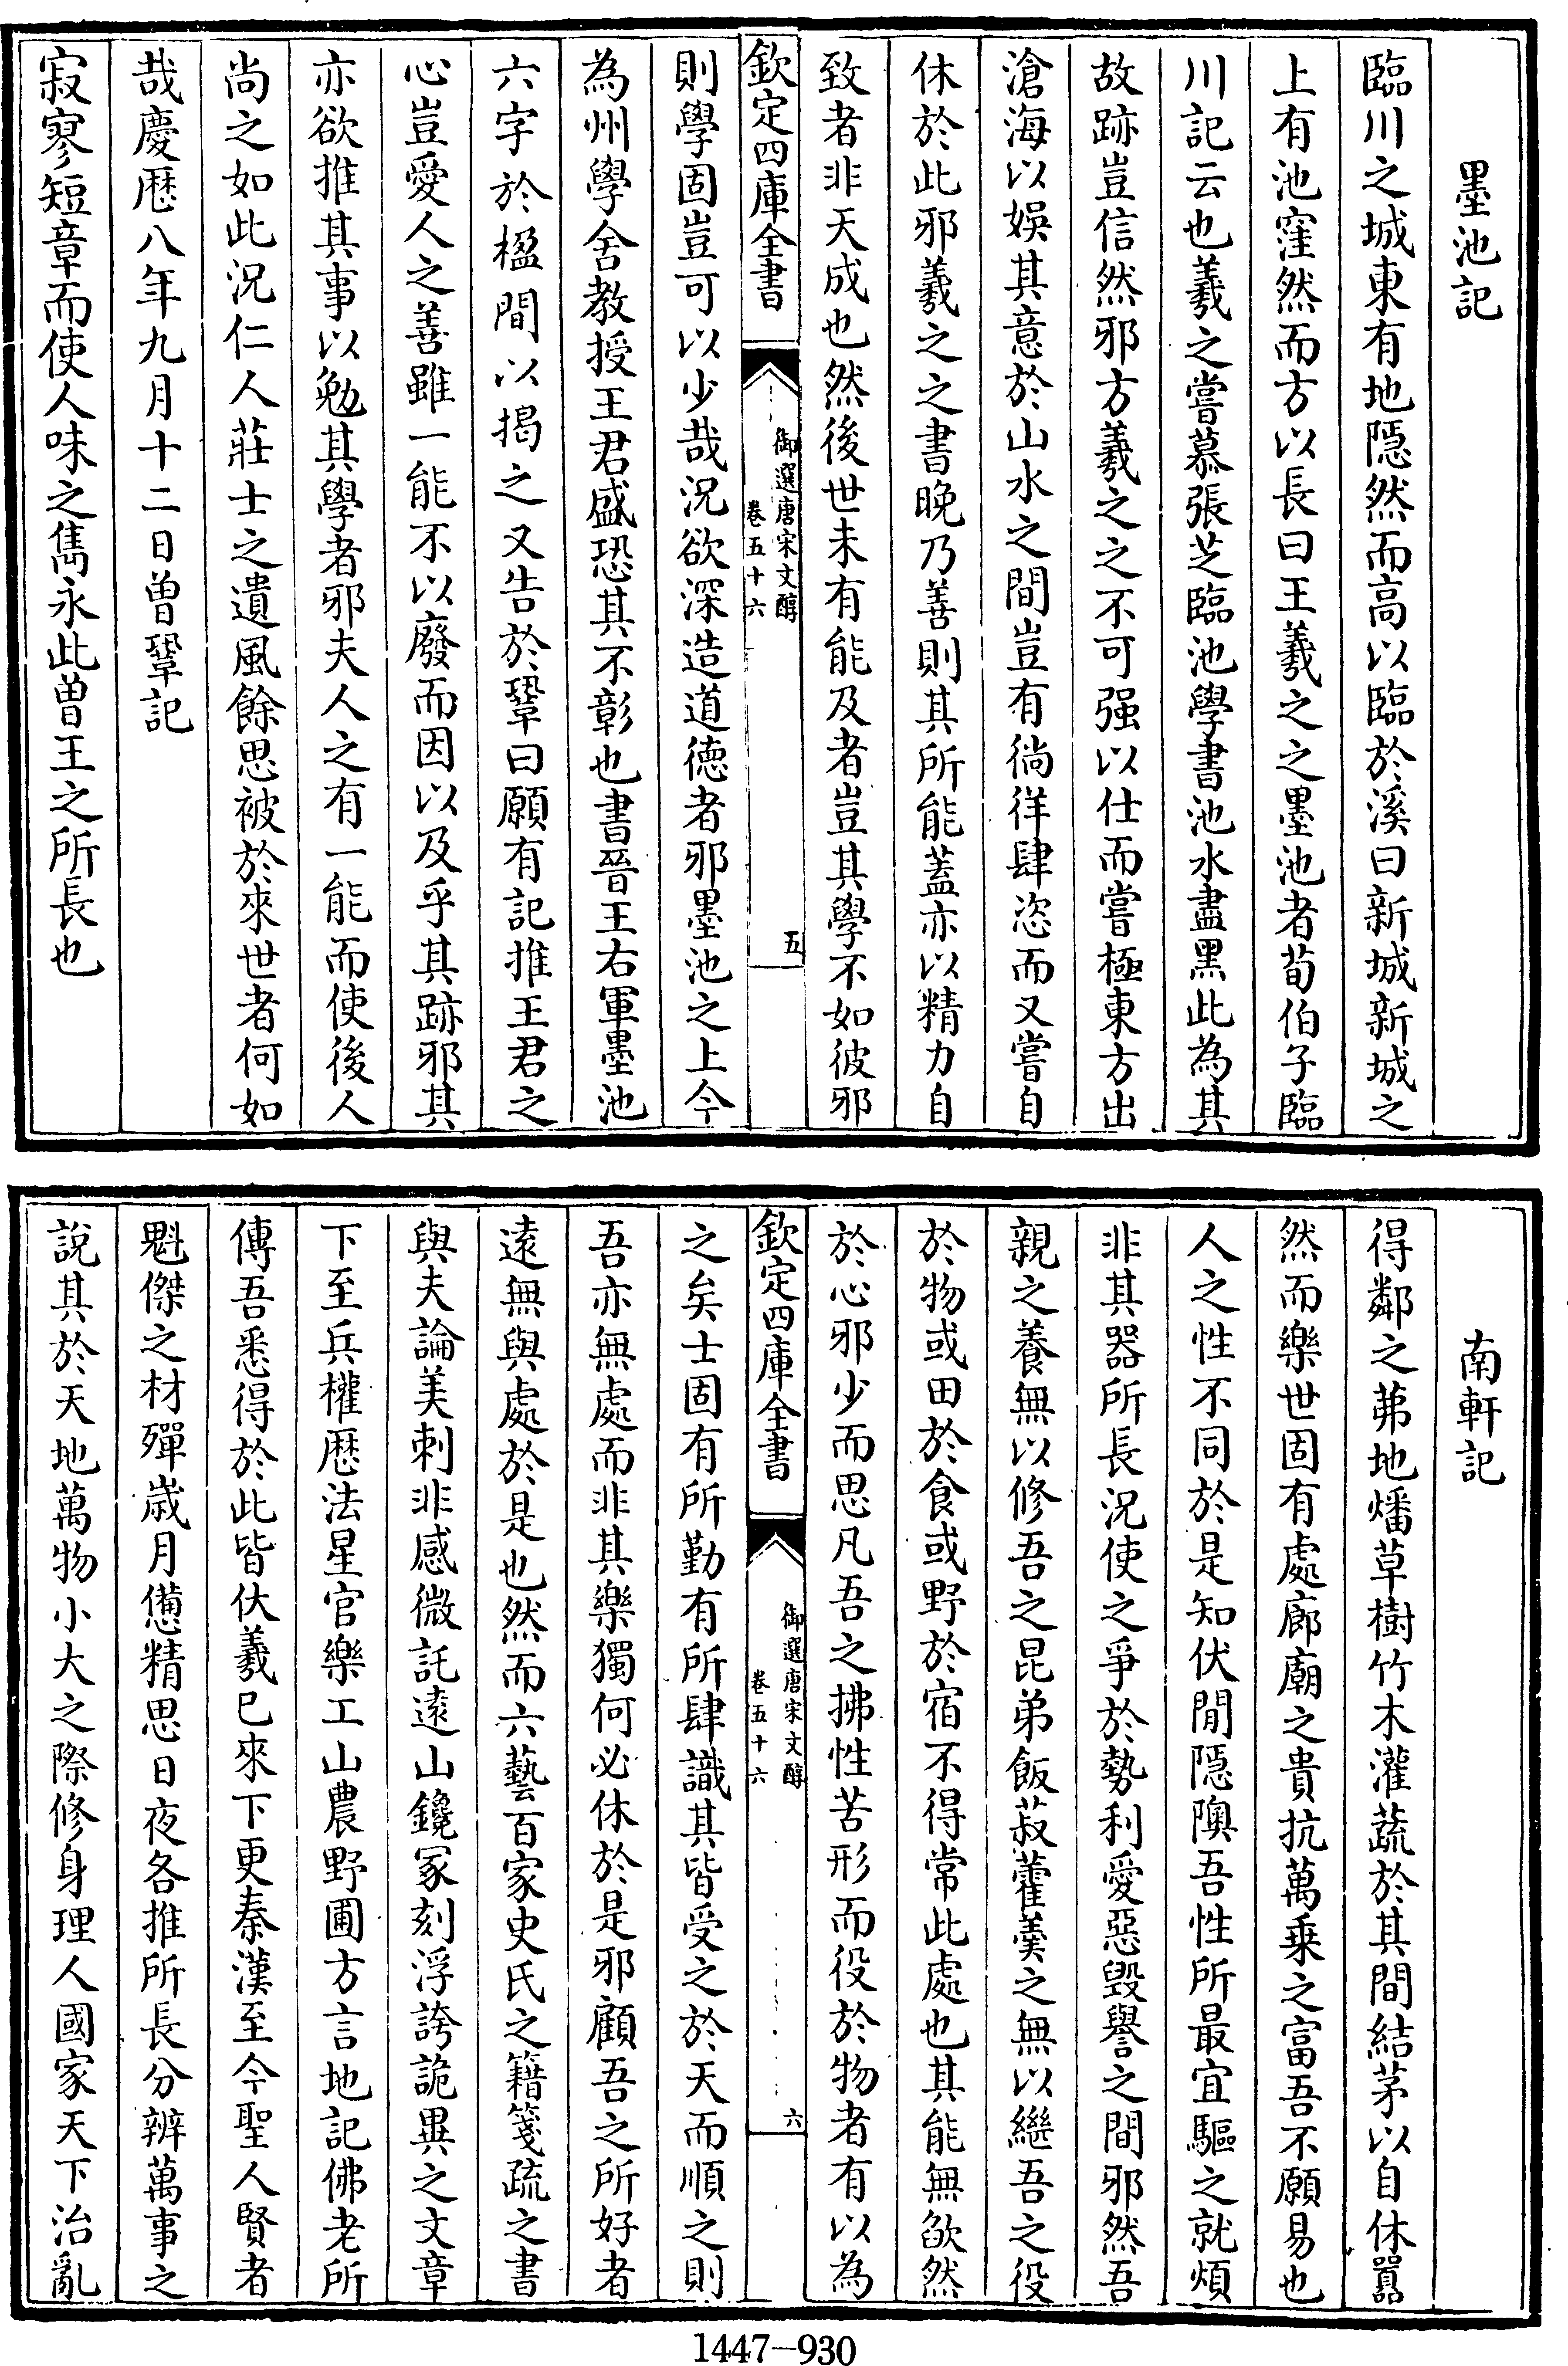 墨池記
臨川之城東有地隠然而高以臨於溪曰新城新城之
上有池窪然而方以長曰王羲之之墨池者荀伯子臨
川記云也羲之嘗慕張芝臨池學書池水盡黑此為其
故跡豈信然邪方羲之之不可强以仕而嘗極東方出
滄海以娛其意於山水之間豈有徜徉肆恣而又嘗自
休於此邪羲之之書晚乃善則其所能蓋亦以精力自
致者非天成也然後世未有能及者豈其學不如彼邪
欽定四庫全書
御選唐宋文醇
卷五十六
五
則學固豈可以少哉況欲深造道德者邪墨池之上今
為州學舍教授王君盛恐其不彰也書晉王右軍墨池
六字於楹間以揭之又告於鞏曰願有記推王君之
心豈愛人之善雖一能不以廢而因以及乎其跡邪其
亦欲推其事以勉其學者邪夫人之有一能而使後人
尚之如此況仁人莊士之遺風餘思被於來世者何如
哉慶厯八年九月十二日曾鞏記
寂寥短章而使人味之雋永此曾王之所長也
南軒記
得鄰之茀地燔草樹竹木灌蔬於其間結茅以自休囂
然而樂世固有處廊廟之貴抗萬乗之富吾不願易也
人之性不同於是知伏閒隠隩吾性所最宜驅之就煩
非其器所長況使之爭於勢利愛惡毀譽之間邪然吾
親之養無以修吾之昆弟飯菽藿羹之無以繼吾之役
於物或田於食或野於宿不得常此處也其能無欿然
於心邪少而思凡吾之拂性苦形而役於物者有以為
欽定四庫全書
御選唐宋文醇
卷五十六
六
之矣士固有所勤有所肆識其皆受之於天而順之則
吾亦無處而非其樂獨何必休於是邪顧吾之所好者
逺無與處於是也然而六藝百家史氏之籍箋疏之書
與夫論美刺非感微託逺山鑱冢刻浮誇詭異之文章
下至兵權厯法星官樂工山農野圃方言地記佛老所
傳吾悉得於此皆伏羲已來下更秦漢至今聖人賢者
魁傑之材殫歲月憊精思日夜各推所長分辨萬事之
說其於天地萬物小大之際修身理人國家天下治亂
1447-930